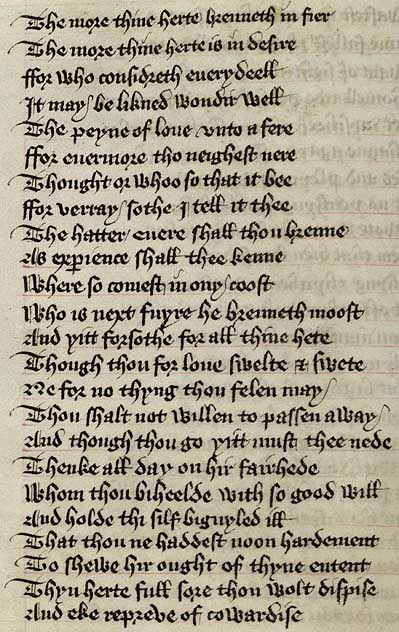 The more thine herte brenneth in fier
The more thine herte is in desire
ffor who considreth euerydeell
It may be likned wondir well
The peyne of loue vnto a fere
ffor euermore tho neighest nere
Thought or whoo so that it bee
ffor verray sothe I tell it thee
The hatter euere shall thou brenne
As experience shall thee kenne
Where so comest in ony coost
Who is next fuyre he brenneth moost
And yitt forsothe for all thine hete
Though thou for loue swelte & swete
Ne for no thyng thou felen may
Thou shalt not willen to passen away
And though thou go yitt must thee nede
Thenke all day on hir fairhede
Whom thou biheelde with so good will
And holde thi silf biguyled ill
That thou ne haddest noon hardement
To shewe hir ought of thyne entent
Thyn herte full sore thou wolt dispise
And eke repreve of cowardise